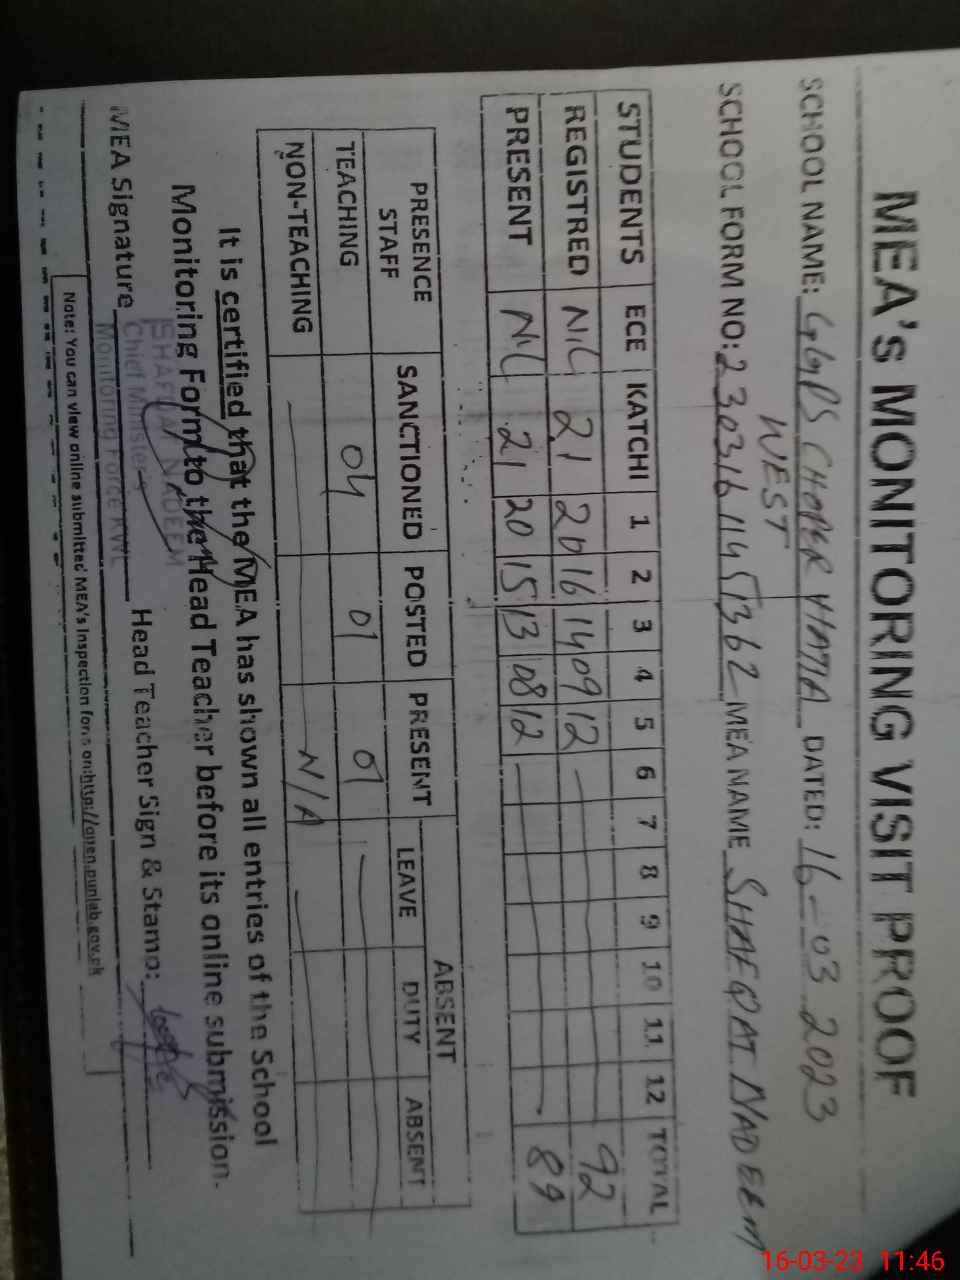 MEA's MONITORING VISIT PROOF
SCHOOL NAME: GGPS CHOPER HATTA DATED: 16-03 2023
WEST
SCHOOL FORM NO: 2303161145362 MEA NAME SHAFQAT NADEEM
STUDENTS ECE KATCHI 1 2 3 4 5 6 7 8 9 10 11 12 TOTAL
REGISTRED NiL 21 20 16 14 09 12 92
PRESENT NiL 21 20 15 13 08 12 89
PRESENCE STAFF SANCTIONED POSTED PRESENT ABSENT
LEAVE DUTY ABSENT
TEACHING 04 01 01
NON-TEACHING N/A
It is certified that the MEA has shown all entries of the School
Monitoring Form to the Head Teacher before its online submission.
SHAFQAT NADEEM
MEA Signature Head Teacher Sign & Stamp:
Chief Minister's
Monitoring Force KWL
Note: You can view online submitted MEA's Inspection form on:http://open.punjab.gov.pk
16-03-23 11:46